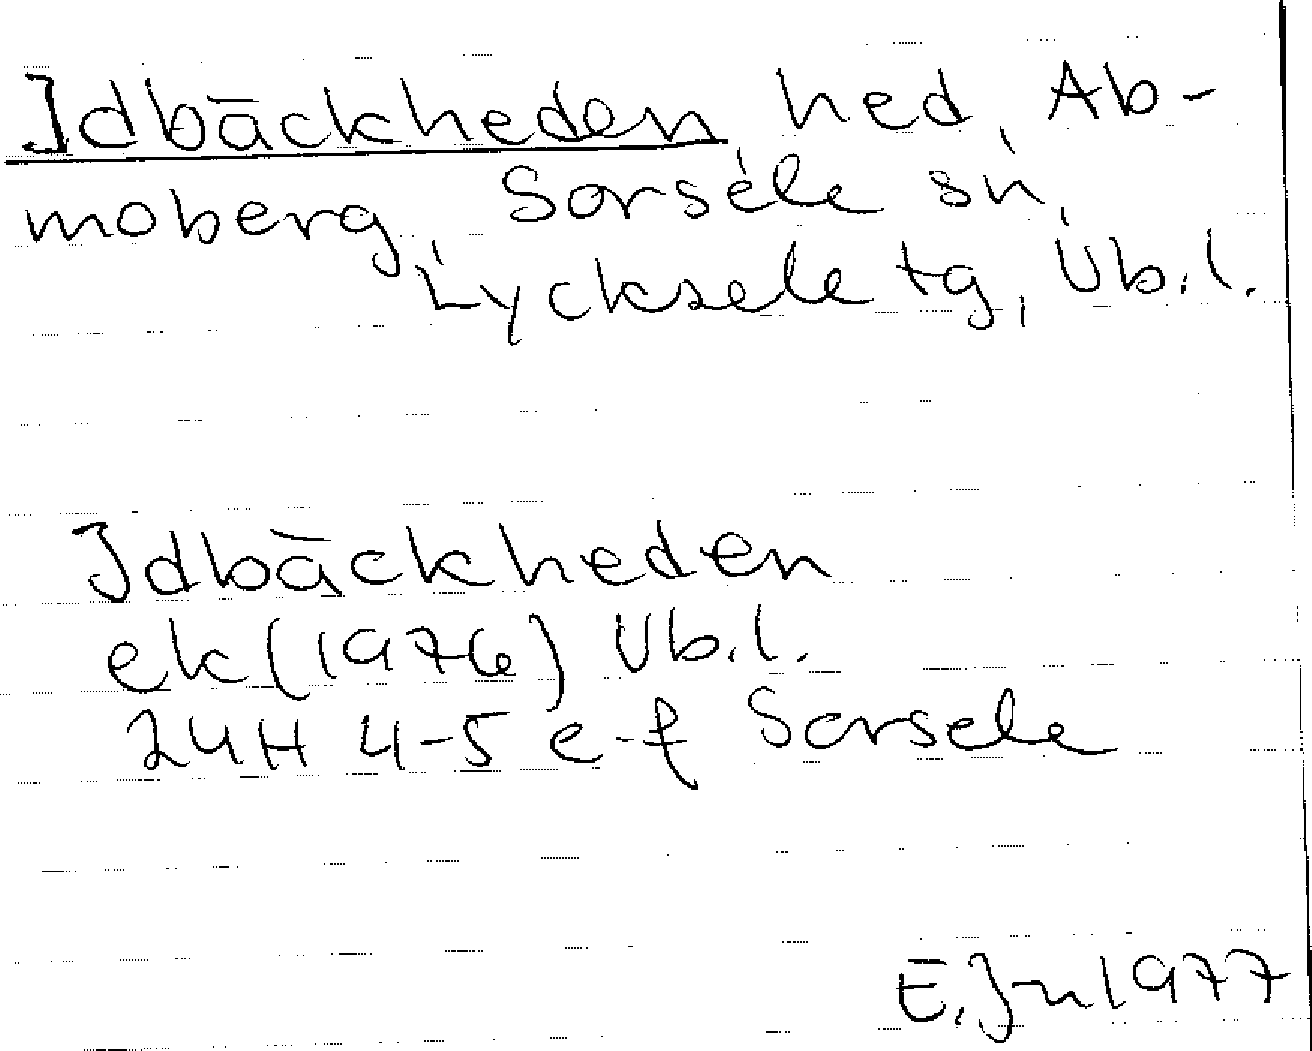 Idbäckheden hed, Ab-
moberg, Sorsele sn,
Lycksele tg, Vb.l.
Idbäckheden
ek (1976) Vb.l.
24H 4-5 e-f Sorsele
E. J-n 1977